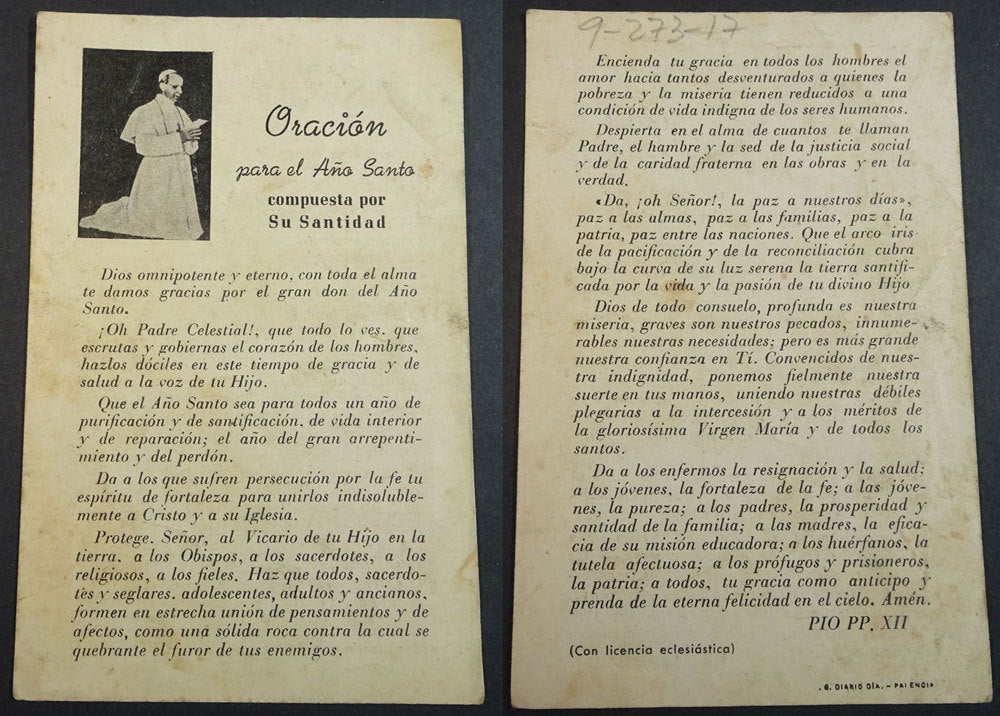 Oración
para el Año Santo
compuesta por
Su Santidad
Dios omnipotente y eterno, con toda el alma
te damos gracias por el gran don del Año
Santo.
¡Oh Padre Celestial!, que todo lo ves. que
escrutas y gobiernas el corazón de los hombres,
hazlos dóciles en este tiempo de gracia y de
salud a la voz de tu Hijo.
Que el Año Santo sea para todos un año de
purificación y de santificación, de vida interior
y de reparación; el año del gran arrepenti-
miento y del perdón.
Da a los que sufren persecución por la fe tu
espíritu de fortaleza para unirlos indisoluble-
mente a Cristo y a su Iglesia.
Protege. Señor, al Vicario de tu Hijo en la
tierra. a los Obispos, a los sacerdotes, a los
religiosos, a los fieles. Haz que todos, sacerdo-
tes y seglares. adolescentes, adultos y ancianos,
formen en estrecha unión de pensamientos y de
afectos, como una sólida roca contra la cual se
quebrante el furor de tus enemigos.
9-273-17
Encienda tu gracia en todos los hombres el
amor hacia tantos desventurados a quienes la
pobreza y la miseria tienen reducidos a una
condición de vida indigna de los seres humanos.
Despierta en el alma de cuantos te llaman
Padre, el hambre y la sed de la justicia social
y de la caridad fraterna en las obras y en la
verdad.
«Da, ¡oh Señor!, la paz a nuestros días»,
paz a las almas, paz a las familias, paz a la
patria, paz entre las naciones. Que el arco iris
de la pacificación y de la reconciliación cubra
bajo la curva de su luz serena la tierra santifi-
cada por la vida y la pasión de tu divino Hijo
Dios de todo consuelo, profunda es nuestra
miseria, graves son nuestros pecados, innume-
rables nuestras necesidades; pero es más grande
nuestra confianza en Tí. Convencidos de nues-
tra indignidad, ponemos fielmente nuestra
suerte en tus manos, uniendo nuestras débiles
plegarias a la intercesión y a los méritos de
la gloriosísima Virgen María y de todos los
santos.
Da a los enfermos la resignación y la salud;
a los jóvenes, la fortaleza de la fe; a las jóve-
nes, la pureza; a los padres, la prosperidad y
santidad de la familia; a las madres, la efica-
cia de su misión educadora; a los huérfanos, la
tutela afectuosa; a los prófugos y prisioneros,
la patria; a todos, tu gracia como anticipo y
prenda de la eterna felicidad en el cielo. Amén.
PIO PP. XII
(Con licencia eclesiástica)
. G. DIARIO DÍA. - PALENCIA